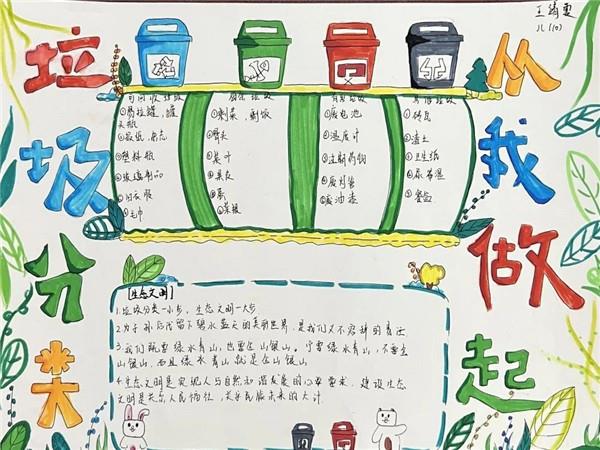 垃圾分类
从我做起
可回收垃圾
①易拉罐、罐
头瓶
②报纸、杂志
③塑料瓶
④玻璃制品
⑤旧衣服
⑥毛巾
厨余垃圾
①剩菜、剩饭
②骨头
③菜叶
④果皮
⑤蛋
⑥菜根
有害垃圾
①废电池
②温度计
③过期药物
④废灯管
⑤废油漆
其他垃圾
①砖瓦
②渣土
③卫生纸
④尿不湿
⑤餐盒
[生态文明]
1.垃圾分类一小步，生态文明一大步
2.为子孙后代留下碧水蓝天的美丽世界，是我们义不容辞的责任
3.我们既要绿水青山，也要金山银山。宁要绿水青山，不要金
山银山，而且绿水青山就是金山银山
4.生态文明是实现人与自然和谐发展的必要要求，建设生态
文明是关系人民福祉，关乎民族未来的大计